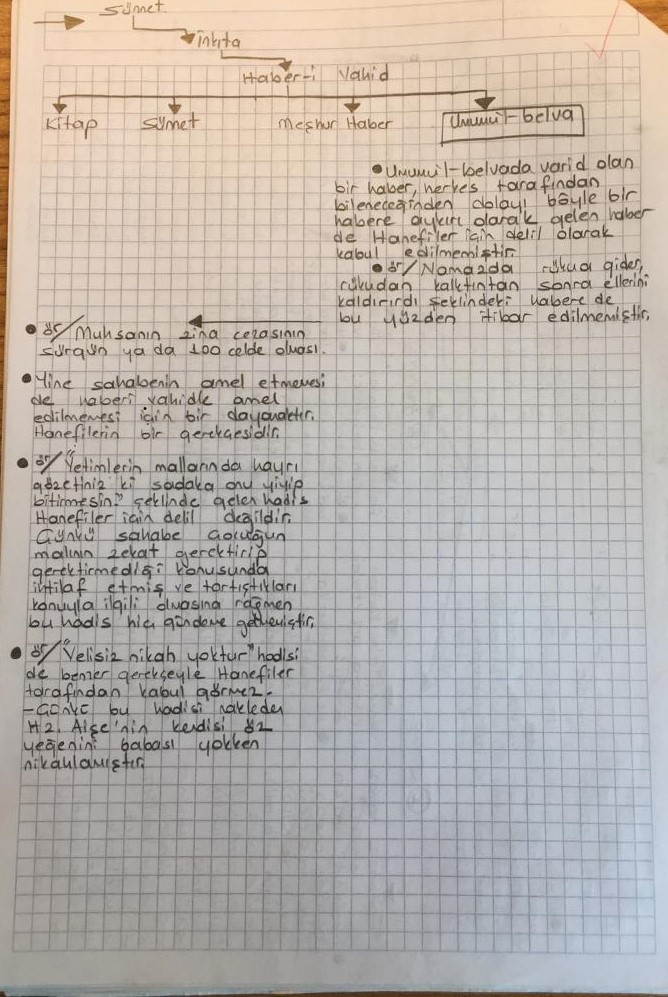 Sünnet
İnkıta
Haber-i Vahid
Kitap Sünnet Meşhur Haber Umumü'l-belva
• Umumü'l-belvada varid olan
bir haber, herkes tarafından
bilineceğinden dolayı böyle bir
habere aykırı olarak gelen haber
de Hanefiler için delil olarak
kabul edilmemiştir.
• ör/ Namazda rükua gider,
rükudan kalktıntan sonra ellerini
kaldırırdı şeklindeki habere de
bu yüzden itibar edilmemiştir.
• ör/ Muhsanın zina cezasının
sürgün ya da 100 celde olması.
• Yine sahabenin amel etmemesi
de haberi vahidle amel
edilmemesi için bir dayanaktır.
Hanefilerin bir gerekçesidir.
• ör/ "Yetimlerin mallarında hayrı
gözetiniz ki sadaka onu yiyip
bitirmesin." şeklinde gelen hadis
Hanefiler için delil değildir.
Çünkü sahabe çocuğun
malının zekat gerektirip
gerektirmediği konusunda
ihtilaf etmiş ve tartıştıkları
konuyla ilgili olmasına rağmen
bu hadis hiç gündeme gelmemiştir.
• ör/ "Velisiz nikah yoktur" hadisi
de benzer gerekçeyle Hanefiler
tarafından kabul görmez.
- Çünkü bu hadisi nakleden
Hz. Aişe'nin kendisi öz
yeğenini babası yokken
nikahlamıştır.